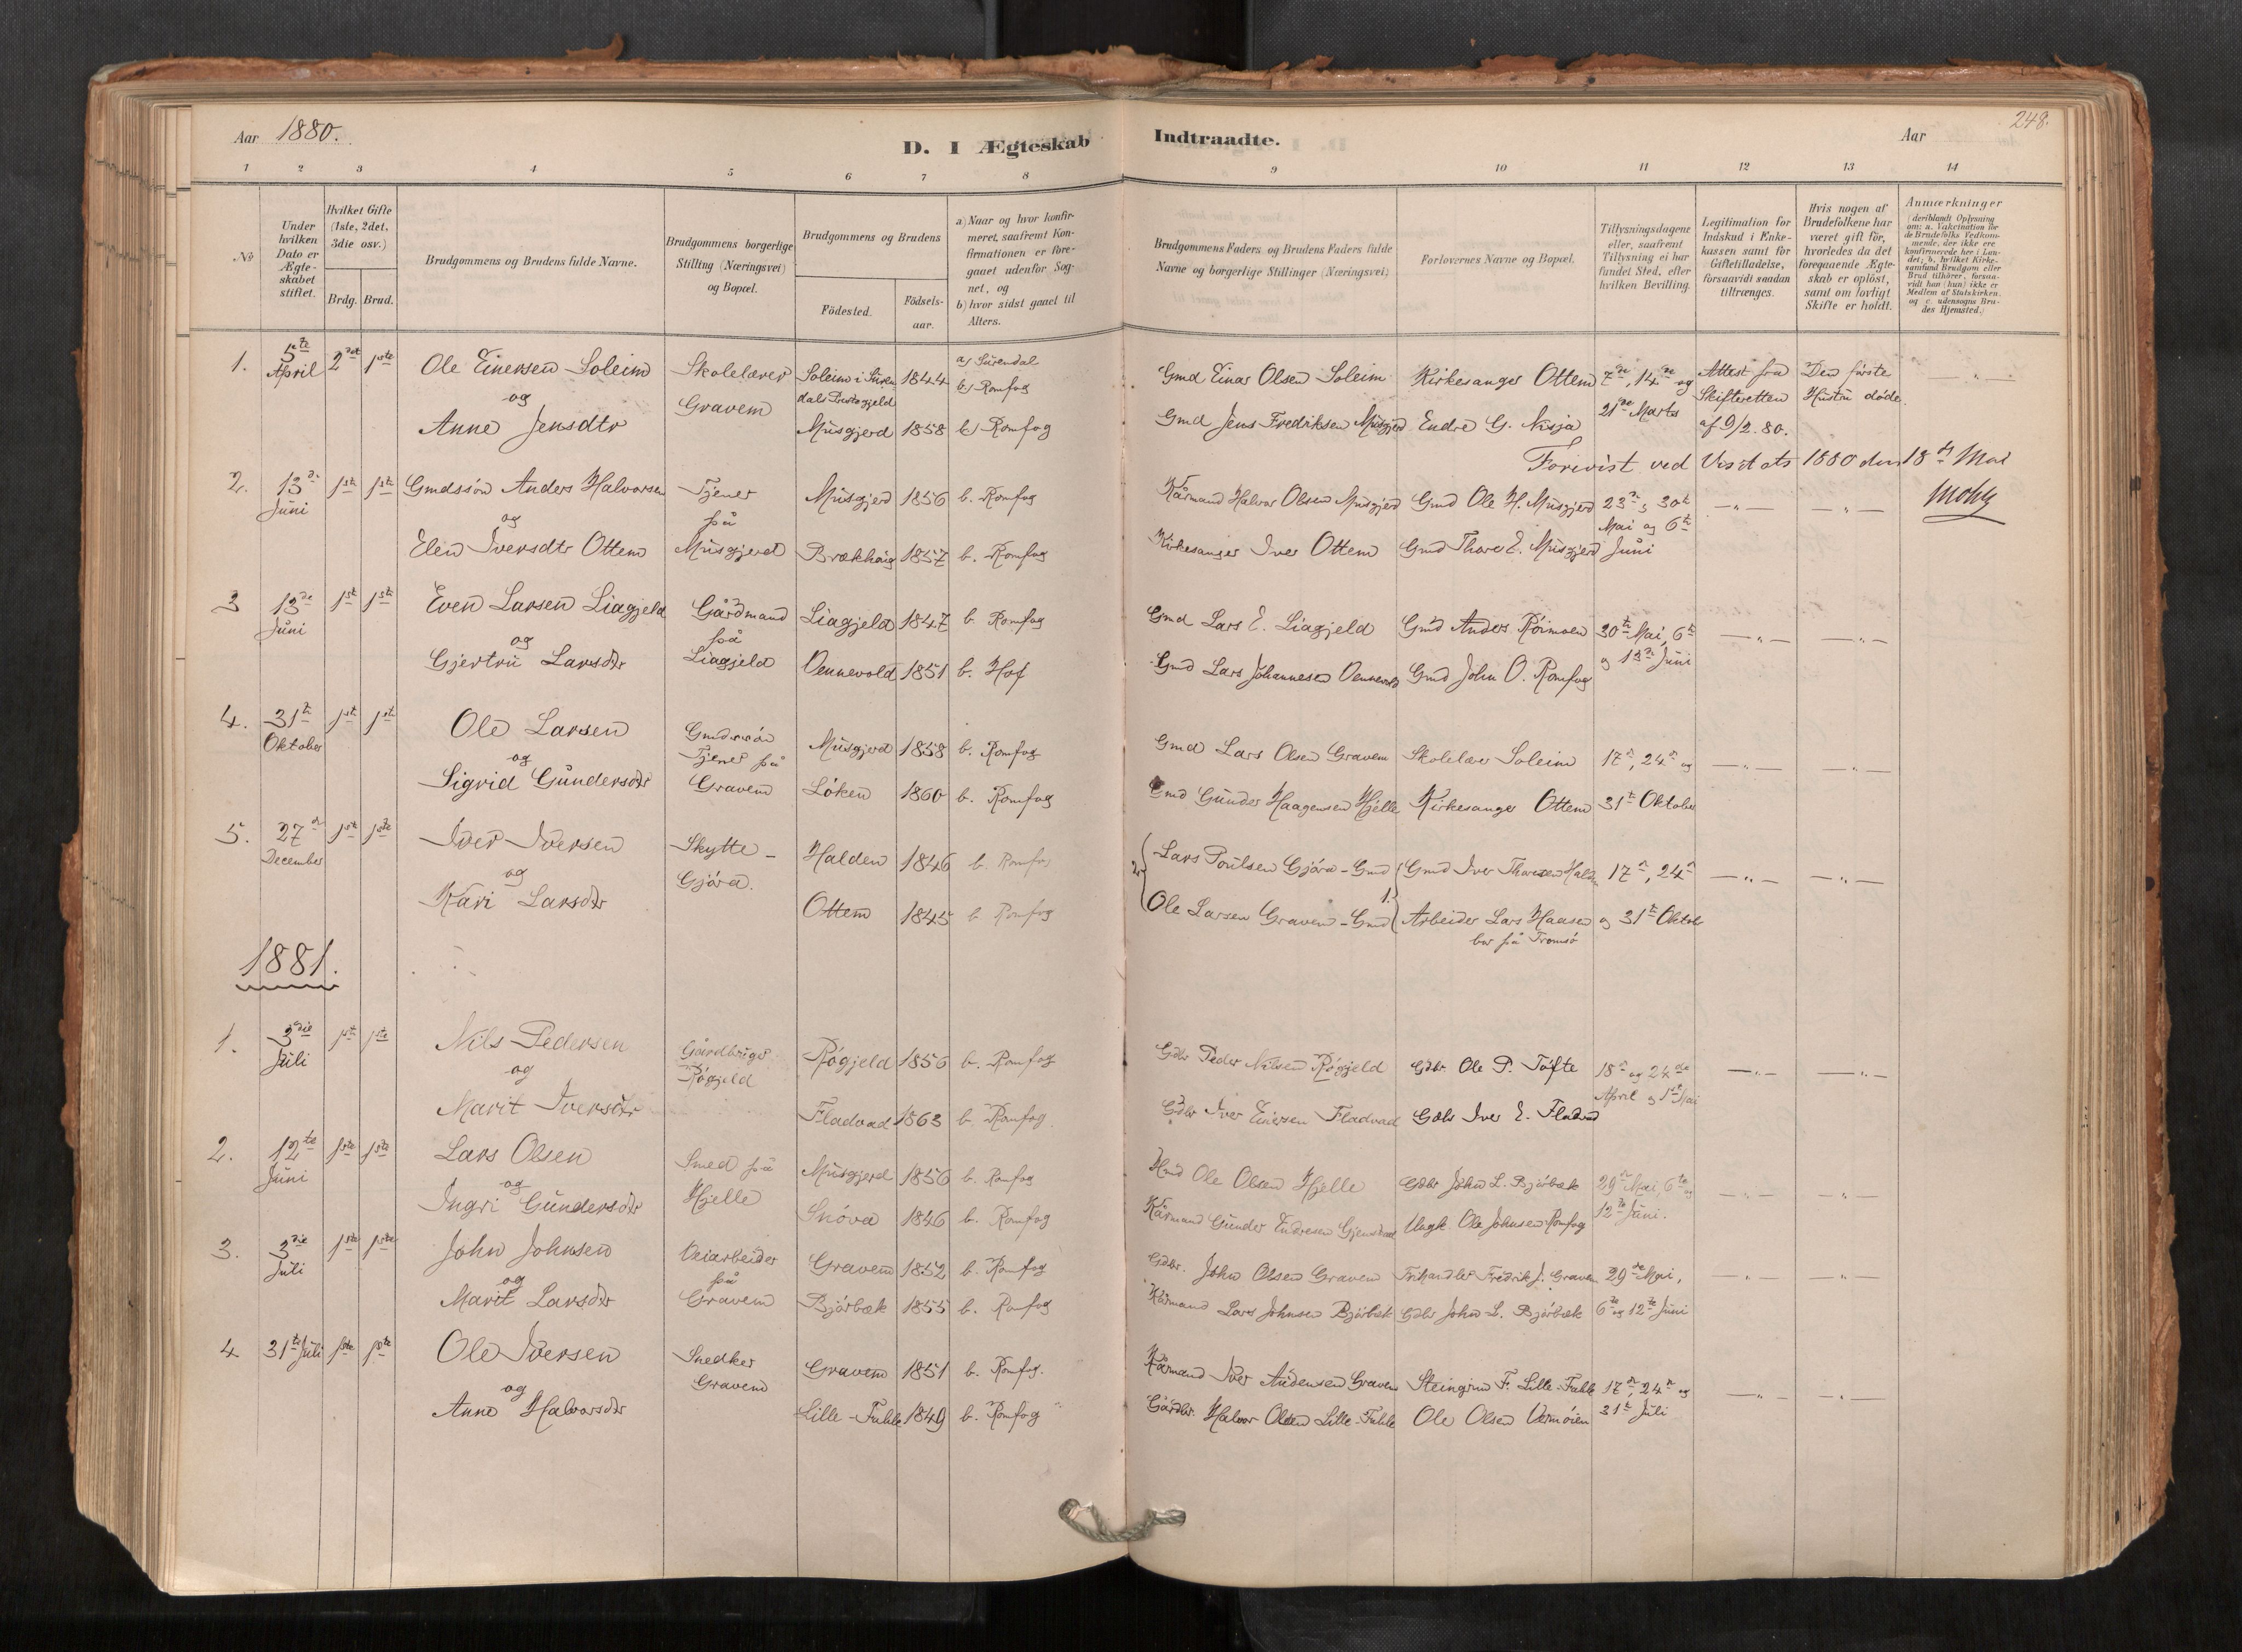 Aar 1880.
D. I Ægteskab Indtraadte.
Aar
248.
1 2 3 4 5 6 7 8 9 10 11 12 13 14
No
Under hvilken Dato er Ægteskabet stiftet.
Hvilket Gifte (1ste, 2det, 3die osv.)
Brdg. Brud.
Brudgommens og Brudens fulde Navne.
Brudgommens borgerlige Stilling (Næringsvei) og Bopæl.
Brudgommens og Brudens
Födested. Födselsaar.
a) Naar og hvor konfirmeret, saafremt Konfirmationen er foregaaet udenfor Sognet, og
b) hvor sidst gaaet til Alters.
Brudgommens Faders og Brudens Faders fulde Navne og borgerlige Stillinger (Næringsvei)
Forlovernes Navne og Bopæl.
Tillysningsdagene eller, saafremt Tillysning ei har fundet Sted, efter hvilken Bevilling.
Legitimation for Indskud i Enkekassen samt for Giftetilladelse, forsaavidt saadan tiltrænges.
Hvis nogen af Brudefolkene har været gift för, hvorledes da det foregaaende Ægteskab er oplöst, samt om lovligt Skifte er holdt.
Anmærkninger (deriblandt Oplysning om: a. Vakcination for de Brudefolks Vedkommende, der ikke ere konfirmerede her i Landet; b. hvilket Kirkesamfund Brudgom eller Brud tilhörer, forsaavidt han (hun) ikke er Medlem af Statskirken. og c. udensogns Brudes Hjemsted.)
1. 5te April 2det 1ste Ole Einersen Soleim Skolelærer Soleim i Surendals Prestegjeld 1844 a) Surendal b) Romfog Gmd Einar Olsen Soleim Kirkesanger Ottem 7de, 14de og Attest fra Den første
og Gravem Skifteretten Hustru døde.
Anne Jensdtr Musgjerd 1858 b) Romfog Gmd Jens Fredriksen Musgjerd Endre G. Nisja 21de Marts af 9/2. 80.
Forevist ved Visitats 1880 den 18de Mai
2. 13de Juni 1ste 1ste Gmdssøn Anders Halvorsen Tjener Musgjerd 1856 b. Romfog Kårmand Halvor Olsen Musgjerd Gmd Ole H. Musgjerd 23de, 30te
og på Mai og 6te
Elen Iversdtr Ottem Musgjerd Brækhaug 1857 b. Romfog Kirkesanger Iver Ottem Gmd Thore E. Musgjerd Juni
3 13de Juni 1ste 1ste Even Larsen Liagjeld Gårdmand Liagjeld 1847 b. Romfog Gmd Lars E. Liagjeld Gmd Anders Röimoen 30te Mai, 6te
og på
Gjertru Larsdtr Liagjeld Vennevold 1851 b. Hof Gmd Lars Johannesen Vennevold Gmd John O. Romfog og 13de Juni
4. 31te Oktober 1ste 1ste Ole Larsen Gmdssøn Musgjerd 1858 b. Romfog Gmd Lars Olsen Gravem Skolelær Soleim 17de, 24de og
og Tjener på
Sigrid Gundersdtr Gravem Löken 1860 b. Romfog Gmd Gunder Haagensen Hjelle Kirkesanger Ottem 31te Oktober
5. 27de December 1ste 1ste Iver Iversen Skytte - Halden 1846 b. Romfog Lars Poulsen Gjöra - Gmd Gmd Iver Thoresen Halden 17de, 24de
og Gjöra.
Kari Larsdtr Ottem 1845 b. Romfog Ole Larsen Gravem - Gmd Arbeider Lars Haasen og 31te Oktob
bor på Tromsö
1881.
1. 3die Juli 1ste 1ste Nils Pedersen Gårdbruger Rögjeld 1856 b. Romfog Gdbr Peder Nilsen Rögjeld Gdbr. Ole P. Tofte 18de og 24de
og Rögjeld April og 1ste Mai
Marit Iversdtr Fladvad 1863 b. Romfog. Gdbr Iver Einersen Fladvad Gdbr Iver E. Fladvad
2. 12te Juni 1ste 1ste Lars Olsen Smed på Musgjerd 1856 b. Romfog Hmd Ole Olsen Hjelle Gdbr John L. Bjørbæk 29de Mai, 6te og
og Hjelle
Ingri Gundersdtr Snöva 1846 b. Romfog Kårmand Gunder Endresen Ungk. Ole Johnsen Romfog 12te Juni.
3. 3die Juli 1ste 1ste John Johnsen Veiarbeider Gravem 1852 b. Romfog Gdbr. John Olsen Gravem Fredrik J. Gravem 29de Mai,
og på
Marit Larsdtr Gravem Bjørbæk 1855 b. Romfog Kårmand Lars Johnsen Bjørbæk Gdbr John L. Bjørbæk 6te og 12te Juni
4 31te Juli 1ste 1ste Ole Iversen Snedker Gravem 1851 b. Romfog. Kårmand Iver Audensen Gravem Steingrim F. Lille-Fahle 17de, 24de og
og Gravem
Anne Halvorsdtr Lille-Fahle 1849 b. Romfog Gårdbr. Halvor Olsen Lille-Fahle Ole Olsen Vermöien 31te Juli